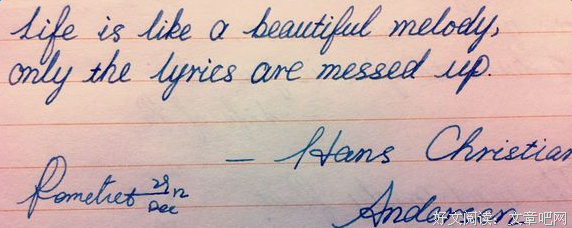 Life is like a beautiful melody,
only the lyrics are messed up.
— Hans Christian
Andersen
29
Dec
好文阅读：文章吧网